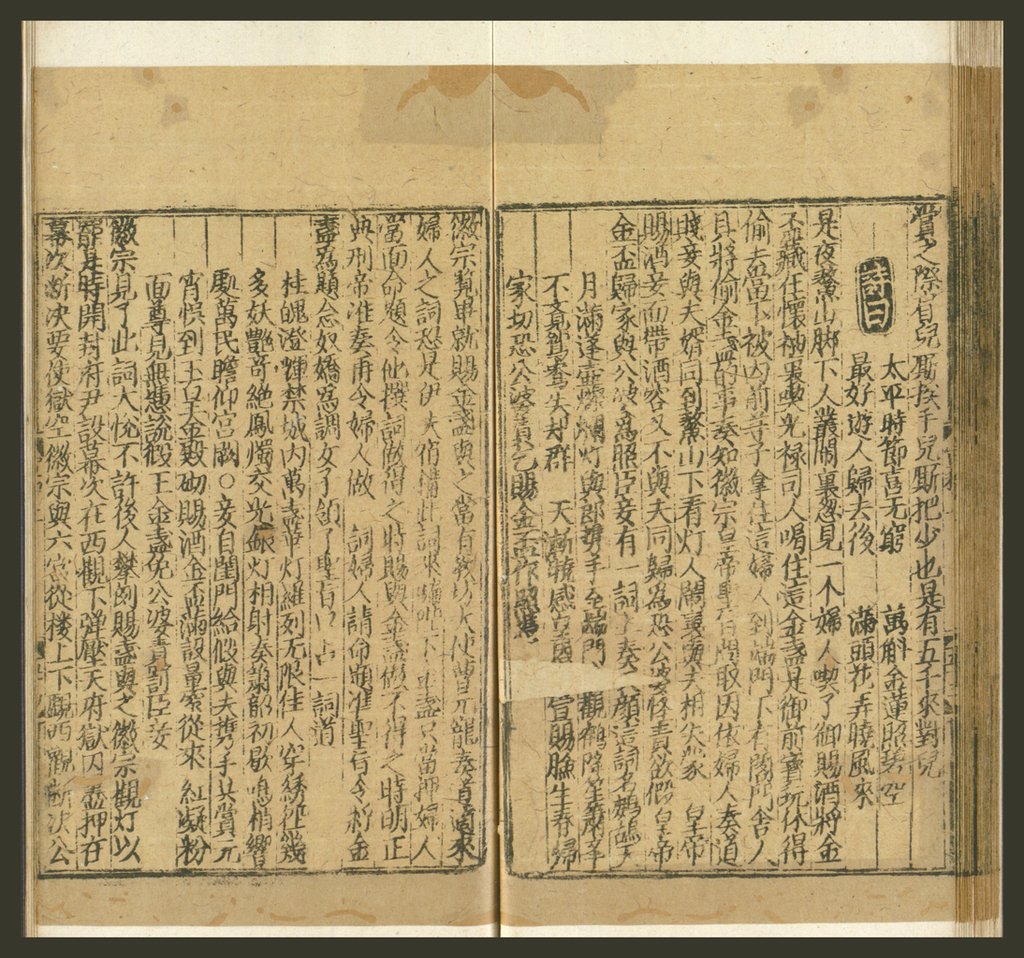 賞之際肩兒厮挨手兒厮把少也是有五千來對兒
詩曰
太平時節喜无窮　萬斛金蓮照碧空
最好遊人歸去後　滿頭花弄曉風來
是夜鰲山脚下人叢鬧裏忽見一个婦人喫了御賜酒將金
盃藏住懷衲裏喫光禄司人喝住這金盞是御前寶玩休得
偷去當下被內前等子拿住這婦人到端門下有閤門舍人
且將偷金盃的事奏知徽宗皇帝聖旨問取因依婦人奏道
賤妾與夫婿同到鰲山下看灯人鬧裏與夫相失蒙　皇帝
賜酒妾面帶酒容又不與夫同歸為恐公婆怪責欲假皇帝
金盃歸家與公婆為照臣妾有一詞上奏天顏這詞名鷓鴣
月滿蓬壺燦爛灯與郎携手至端門　觀鶴降笙簫舉
不覺鴛鴦失却群　天漸曉感皇恩　宣賜臉生春歸
家切恐公婆責乞賜金盃作照憑
徽宗覽畢就賜金盞與之當有教坊大使曹元寵奏道適來
婦人之詞恐是伊夫宿構此詞來騙陛下金盞只當押婦人
當面命題令他撰詞做得之時賜與金盞做不得之時明正
典刑帝准奏再令婦人做　詞婦人請命題准聖旨令將金
盞爲題念奴嬌爲調女子領了聖旨口占一詞道
桂魄澄輝禁城內萬盞華灯羅列无限佳人穿綉徑幾
多妖艷奇絕鳳燭交光銀灯相射奏簫韶初歇鳴梢響
處萬民瞻仰宮闕○妾自閨門給假與夫携手共賞元
宵悞到玉皇金殿砌賜酒金盃滿設量窄從來紅凝粉
面尊見無憑說假王金盞免公婆責罰臣妾
徽宗見了此詞大悅不許後人攀例賜盞與之徽宗觀灯以
畢是時開封府尹設幕次在西觀下弹壓天府獄囚盡押在
幕次断决要使獄空徽宗與六宮從樓上下覷西觀断决公